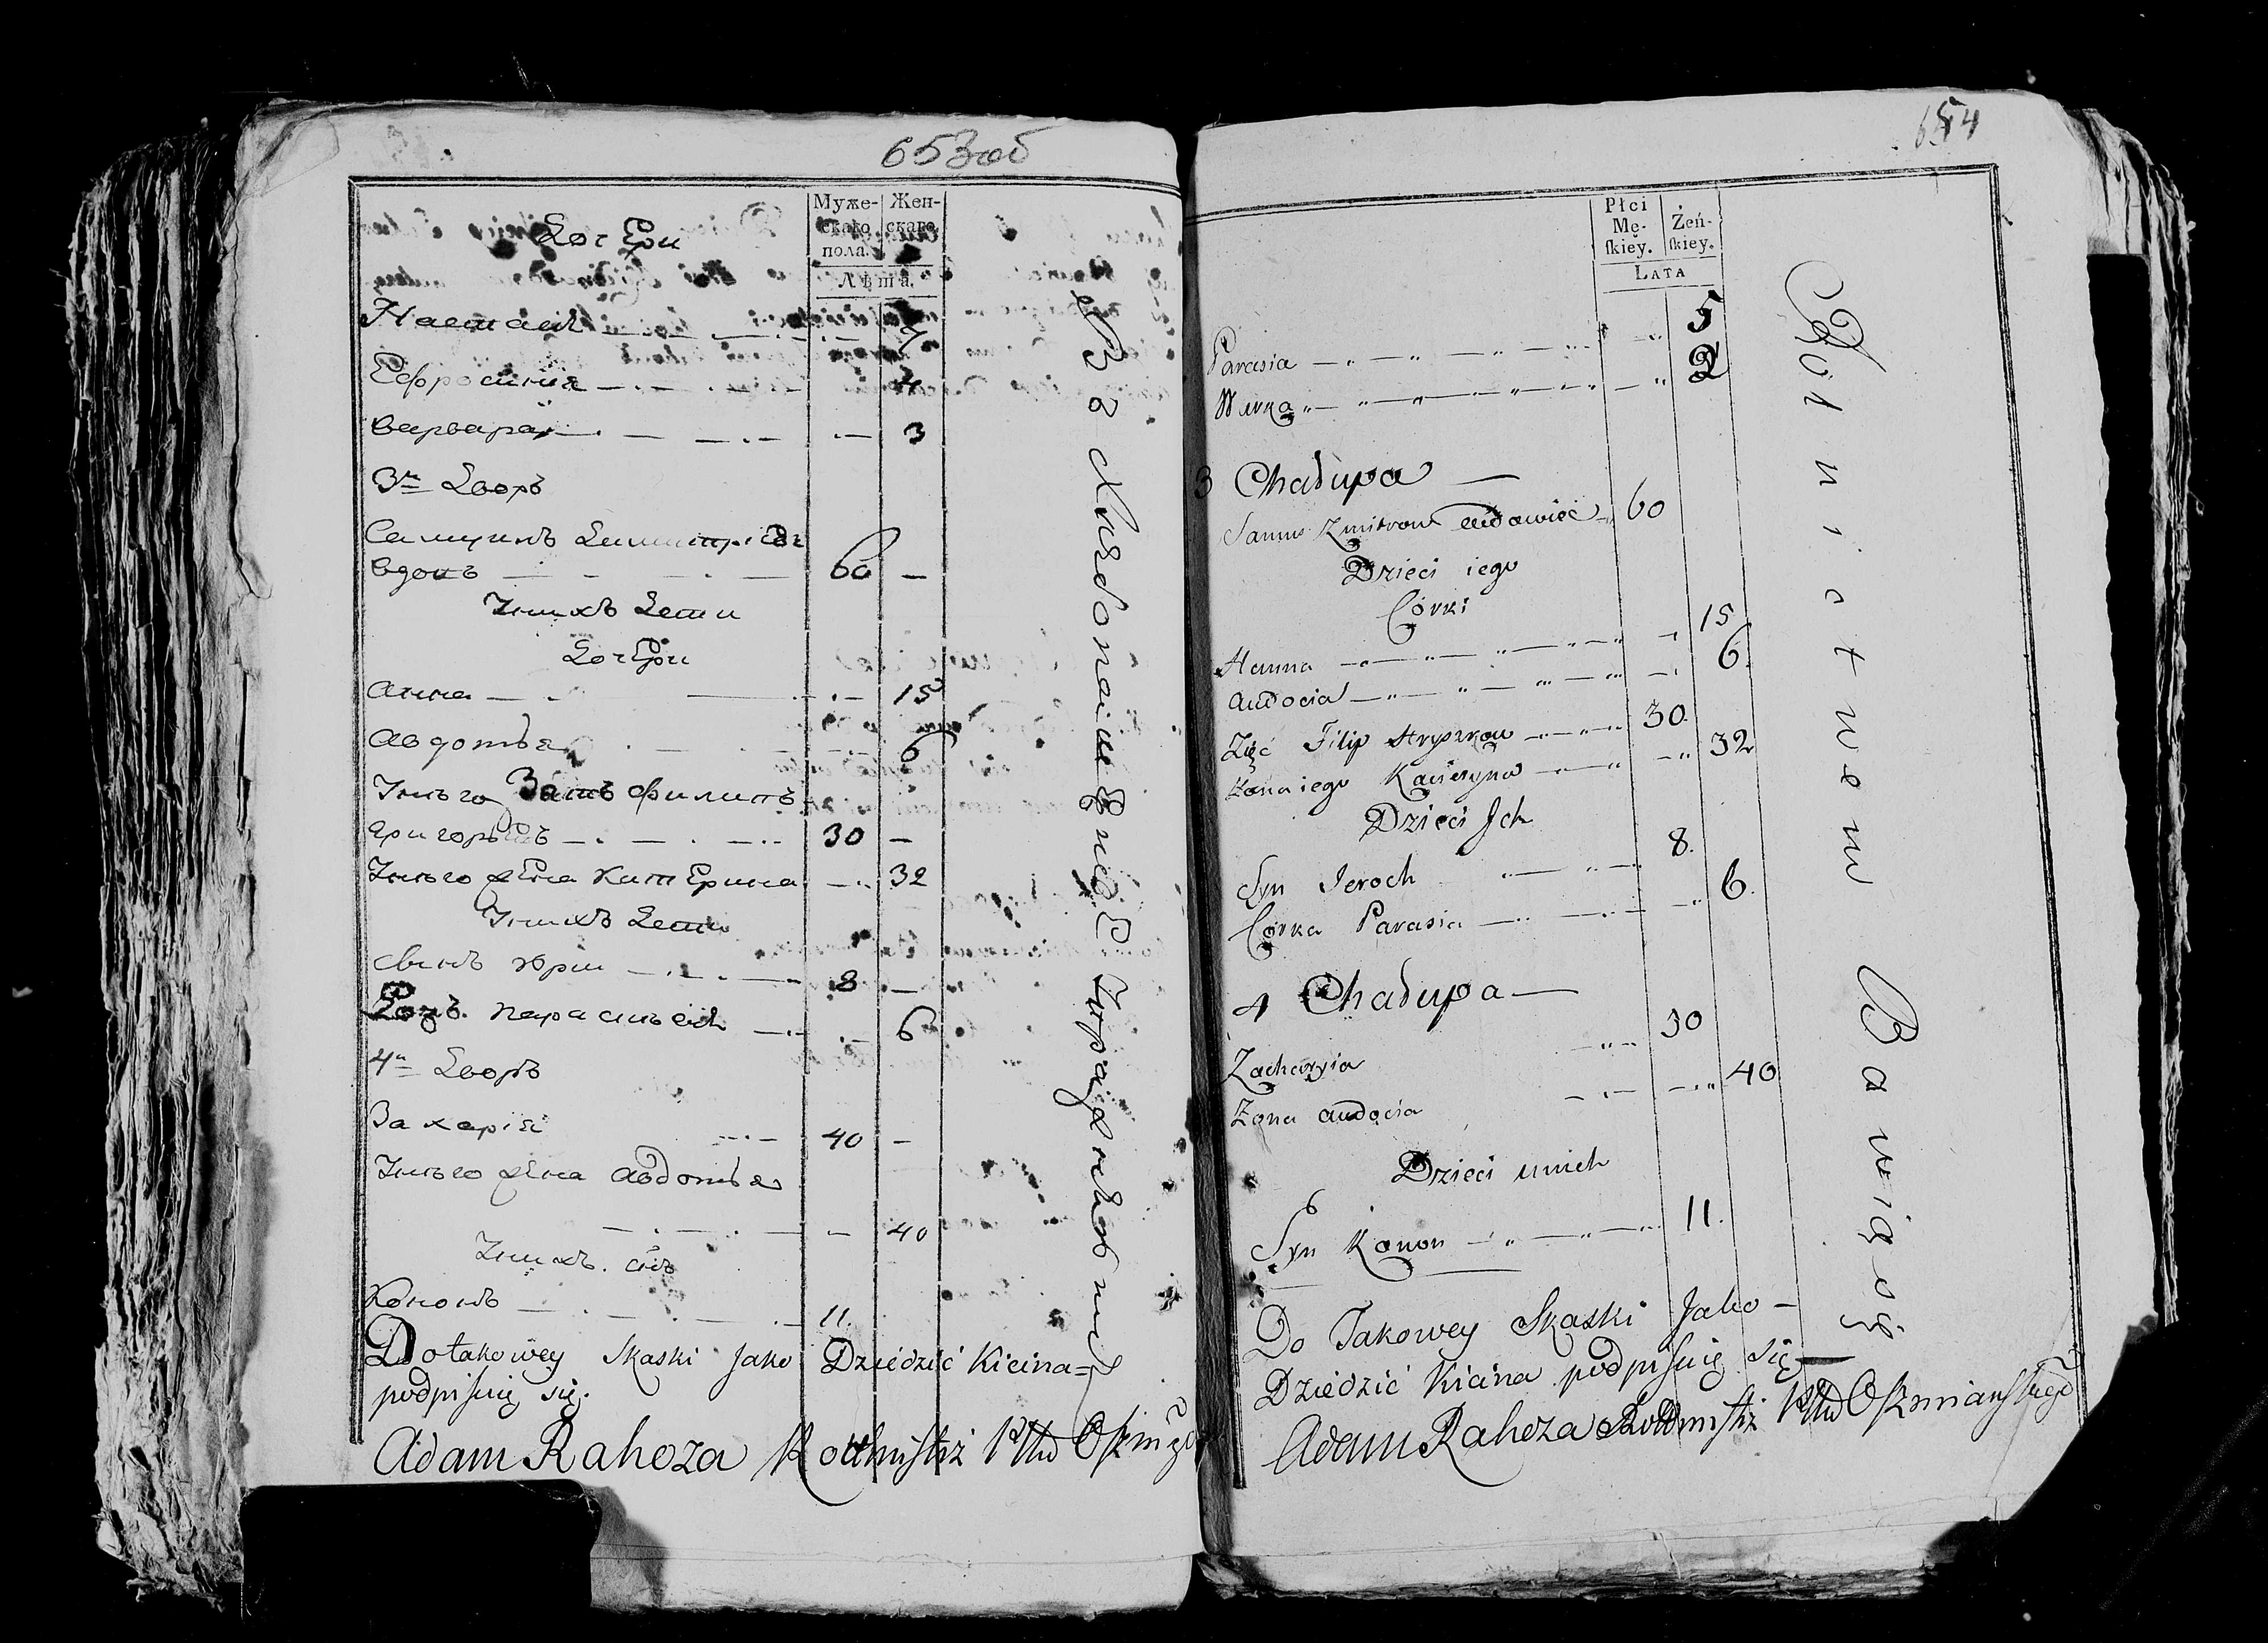 653об
Муже-
скаго
пола.
Жен-
скаго.
Лѣта.
Дочери
Настасія — 7
Ефросинія — 4
Варвара — 3
3й Дворъ
Самуилъ Дмитріевъ
вдовъ — 60 —
У нихъ дети
Дочери
Анна — 15
Авдотья — 6
У него Зять Филипъ
Григорьевъ — 30 —
У него жена Катерина — 32
У нихъ дети
Сынъ Юрій — 8 —
Дочь Парасковія — 6
4й Дворъ
Захарія — 40 —
У него жена Авдотья
— 40
У нихъ сынъ
Кононъ — 11.
Въ хлебопашестве упражняются
Do takowey Skaski Jako Dziedzić Kicina
podpisuię się.
Adam Rahoza Rothmistrz Pttu Oszmgo
654
Płci
Mę-
skiey.
Żeń-
skiey.
LATA
Parasia — 5
Wurka — 2
3 Chałupa —
Samus Zmitrow wdowiec 60
Dzieci iego
Córki
Hanna — 15
Audocia — 6.
Zięć Filip Hryszkow — 30.
Żona iego Kacieryna — 32
Dzieci Jch
Syn Jeroch — 8.
Córka Parasia — 6.
4 Chałupa —
Zacharyia — 30
Żona Audocia — 40
Dzieci u nich
Syn Konon — 11.
Rolnictwem Bawią się
Do Takowey Skaski Jako —
Dziedzić Kicina podpisuię się
Adam Rahoza Rothmistrz Pttu Oszmianskiego